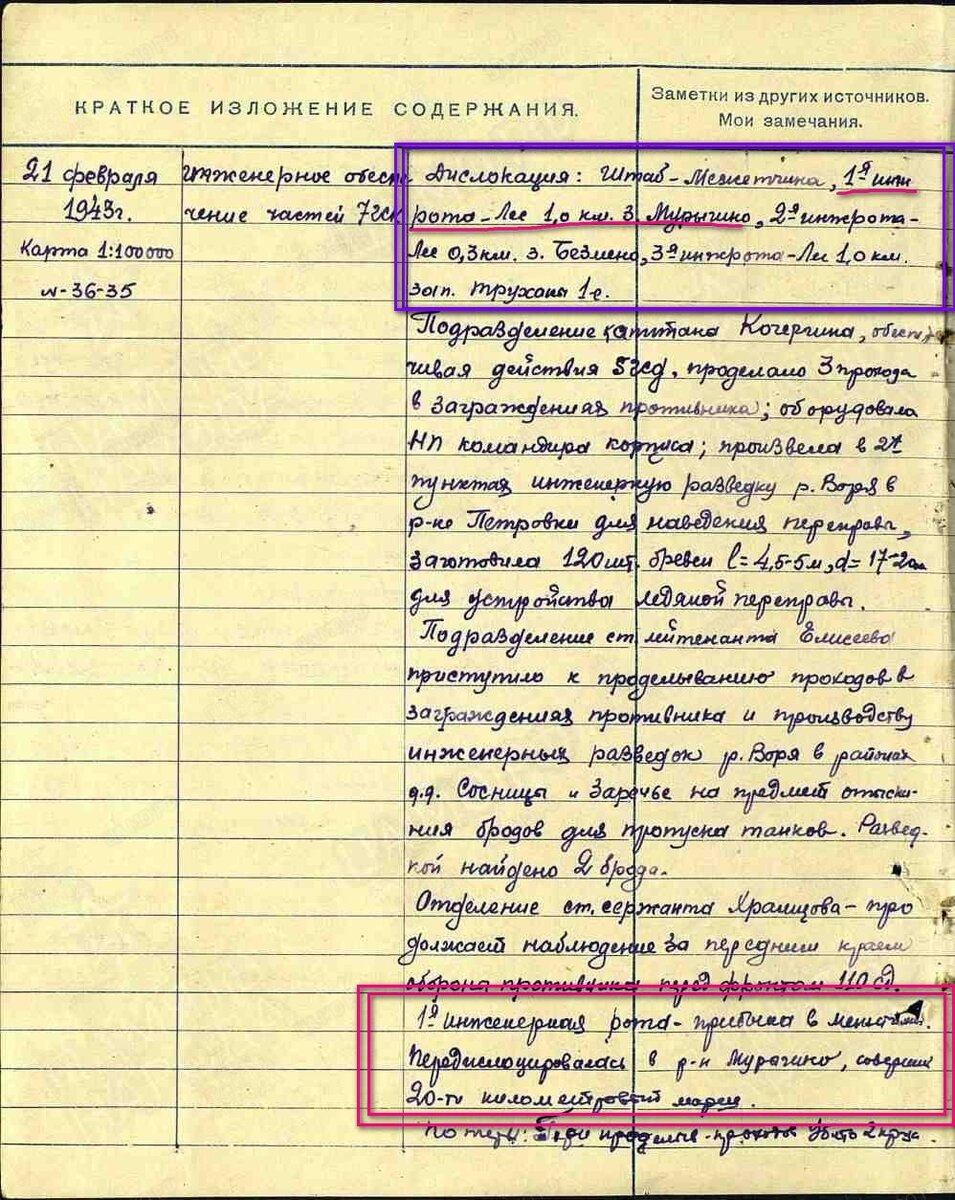 КРАТКОЕ ИЗЛОЖЕНИЕ СОДЕРЖАНИЯ.
Заметки из других источников.
Мои замечания.
21 февраля
1943г.
Карта 1:100000
N-36-35
Инженерное обеспе
чение частей 7гск
Дислокация: Штаб-Межетчина, 1я инж
рота-Лес 1,0 км. З. Мурыгино, 2я инжрота-
Лес 0,3км. з. Безмено, 3я инжрота-Лес 1,0 км.
зап. Труханы 1-е.
Подразделение капитана Кочергина, обеспе
чивая действия 5 гсд, проделало 3 прохода
в заграждениях противника; оборудовала
НП командира корпуса; произвела в 2х
пунктах инженерную разведку р. Воря в
р-не Петровки для наведения переправы,
заготовила 120 шт. бревен l=4,5-5м, d=17-20см
для устройства ледяной переправы.
Подразделение ст. лейтенанта Елисеева
приступило к проделыванию проходов в
заграждениях противника и производству
инженерных разведок р. Воря в районах
д.д. Сосницы и Заречье на предмет отыска-
ния бродов для пропуска танков. Развед-
кой найдено 2 брода.
Отделение ст. сержанта Храмцова - про
должает наблюдение за передним краем
обороны противника перед фронтом 110 сд.
1я инженерная рота - прибыла в
Передислоцировалась в р-н Мурагино, совершив
20-ти километровый марш.
Потери: При убито 2 кр-ца.